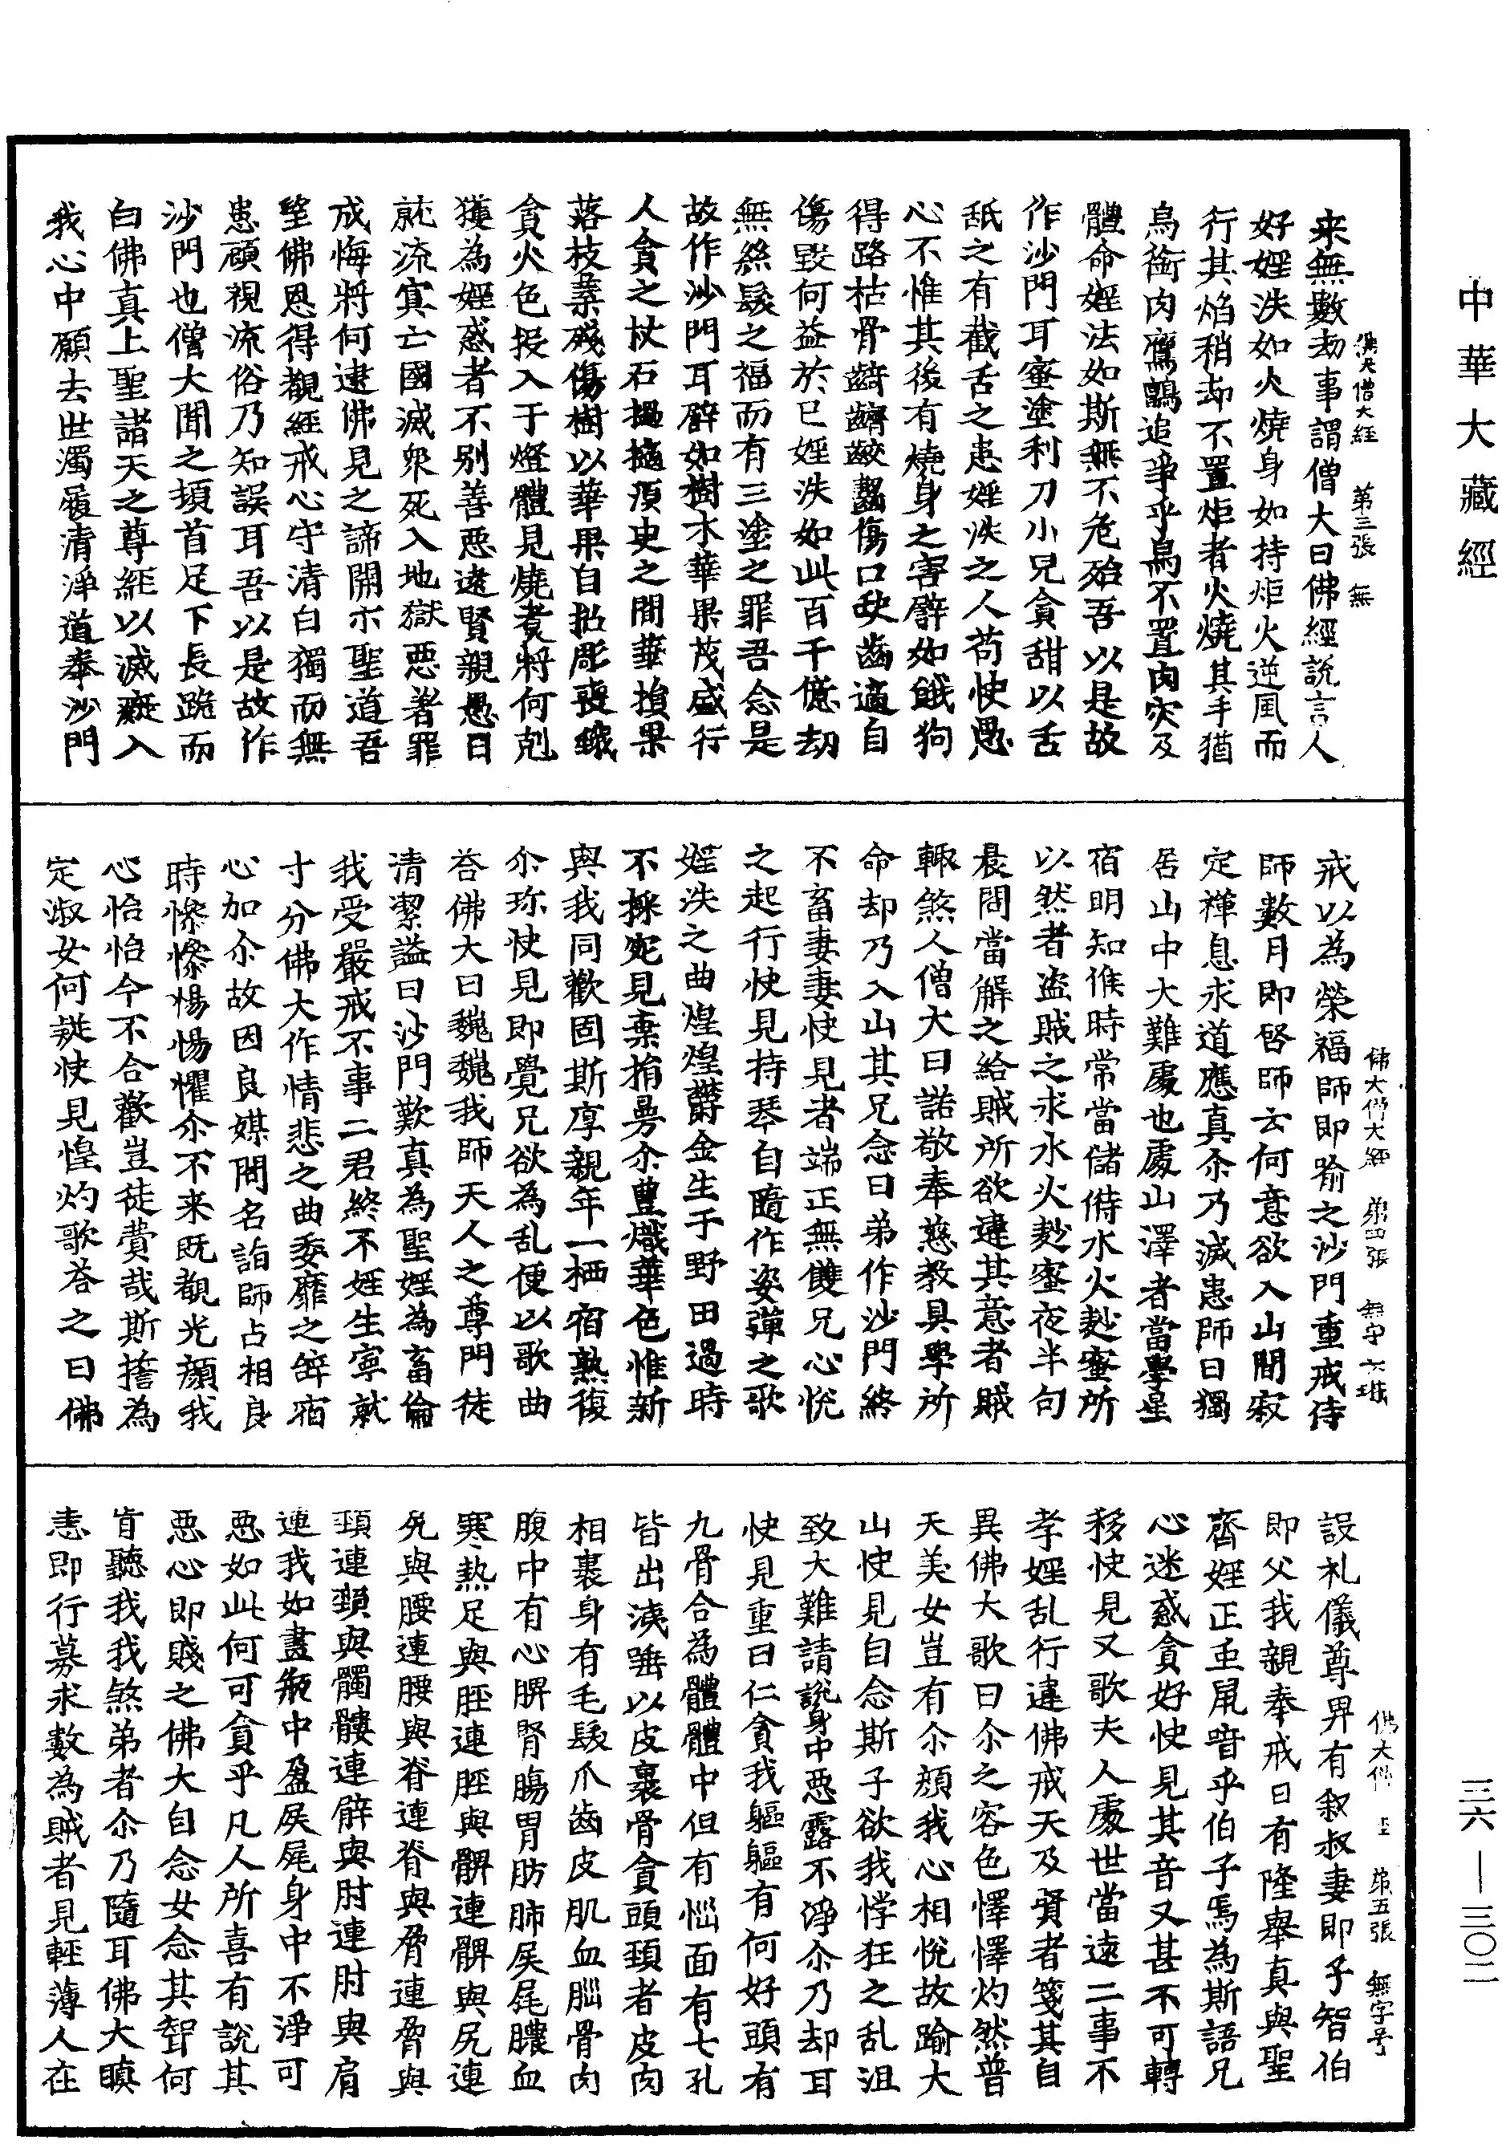 中華大藏經
佛大僧大經 第三張 無
来無數劫事謂僧大曰佛經說言人
好婬泆如火燒身如持炬火逆風而
行其焰稍却不置炬者火燒其手猶
烏銜肉鷹鸇追爭乎烏不置肉灾及
體命婬法如斯無不危殆吾以是故
作沙門耳蜜塗利刀小兒貪甜以舌
舐之有截舌之患婬泆之人苟快愚
心不惟其後有燒身之害譬如餓狗
得路枯骨齩齧傷口缺齒適自
傷毀何益於己婬泆如此百千億劫
無絲髮之福而有三塗之罪吾念是
故作沙門耳譬如樹木華果茂盛行
人貪之杖石撾擿須臾之間華損果
落枝葉殘傷樹以華果自招彫喪蛾
貪火色投入于燈體見燒煮將何剋
獲為婬惑者不別善惡遠賢親愚日
就流冥亡國滅眾死入地獄惡著罪
成悔將何逮佛見之諦開示聖道吾
蒙佛恩得觀經戒心守清白獨而無
患顧視流俗乃知誤耳吾以是故作
沙門也僧大聞之頭首足下長跪而
白佛真上聖諸天之尊經以滅癡入
我心中願去世濁履清淨道奉沙門
佛大僧大經 第四張 無字号
戒以為榮福師即喻之沙門重戒侍
師數月即啓師云何意欲入山閒寂
定禪息求道應真尒乃滅患師曰獨
居山中大難處也處山澤者當學星
宿明知候時常當儲偫水火麨蜜所
以然者盜賊之求水火麨蜜夜半向
晨問當解之給賊所欲違其意者賊
輒煞人僧大曰諾敬奉慈教具學所
命却乃入山其兄念曰弟作沙門終
不畜妻妻快見者端正無雙兄心悅
之起行快見持琴自隨作姿彈之歌
婬泆之曲煌煌欝金生于野田過時
不採宛見棄捐曼尒豐熾華色惟新
與我同歡固斯厚親年一栖宿熟復
尒珎快見即覺兄欲為乱便以歌曲
荅佛大曰巍巍我師天人之尊門徒
清潔謚曰沙門歎真為聖婬為畜倫
我受嚴戒不事二君終不婬生寧就
寸分佛大作情悲之曲委靡之辭宿
心加尒故因良媒問名詣師占相良
時慘慘惕惕懼尒不来既觀光顏我
心怡怡今不合歡豈徒費哉斯擔為
定淑女何疑快見惶灼歌荅之曰佛
佛大僧 第五張 無字号
設礼儀尊卑有叙叔妻即子智伯
即父我親奉戒日有隆舉真與聖
齊婬正虫鼠喑乎伯子焉為斯語兄
心迷惑貪好快見其音又甚不可轉
移快見又歌夫人處世當遠二事不
孝婬乱行違佛戒天及賢者箋其自
異佛大歌曰尒之容色懌懌灼然普
天美女豈有尒顏我心相悅故踰大
山快見自念斯子欲我悖狂之乱沮
致大難請說身中惡露不淨尒乃却耳
快見重曰仁貪我軀軀有何好頭有
九骨合為體體中但有惱面有七孔
皆出洟唾以皮裹骨貪頭頸者皮肉
相裹身有毛髮爪齒皮肌血䐉骨肉
腹中有心脾腎腸胃肪肺屎尾膿血
寒熱足與脛連脛與髀連髀與尻連
尻與腰連腰與脊連脊與脅連脅與
頸連頸與髑髏連臂與肘連肘與肩
連我如畫瓶中盈屎尾身中不淨可
惡如此何可貪乎凡人所喜有說其
惡心即賤之佛大自念女念其聟何
肯聽我我煞弟者尒乃隨耳佛大瞋
恚即行募求數為賊者見輕薄人在
三六—三〇二